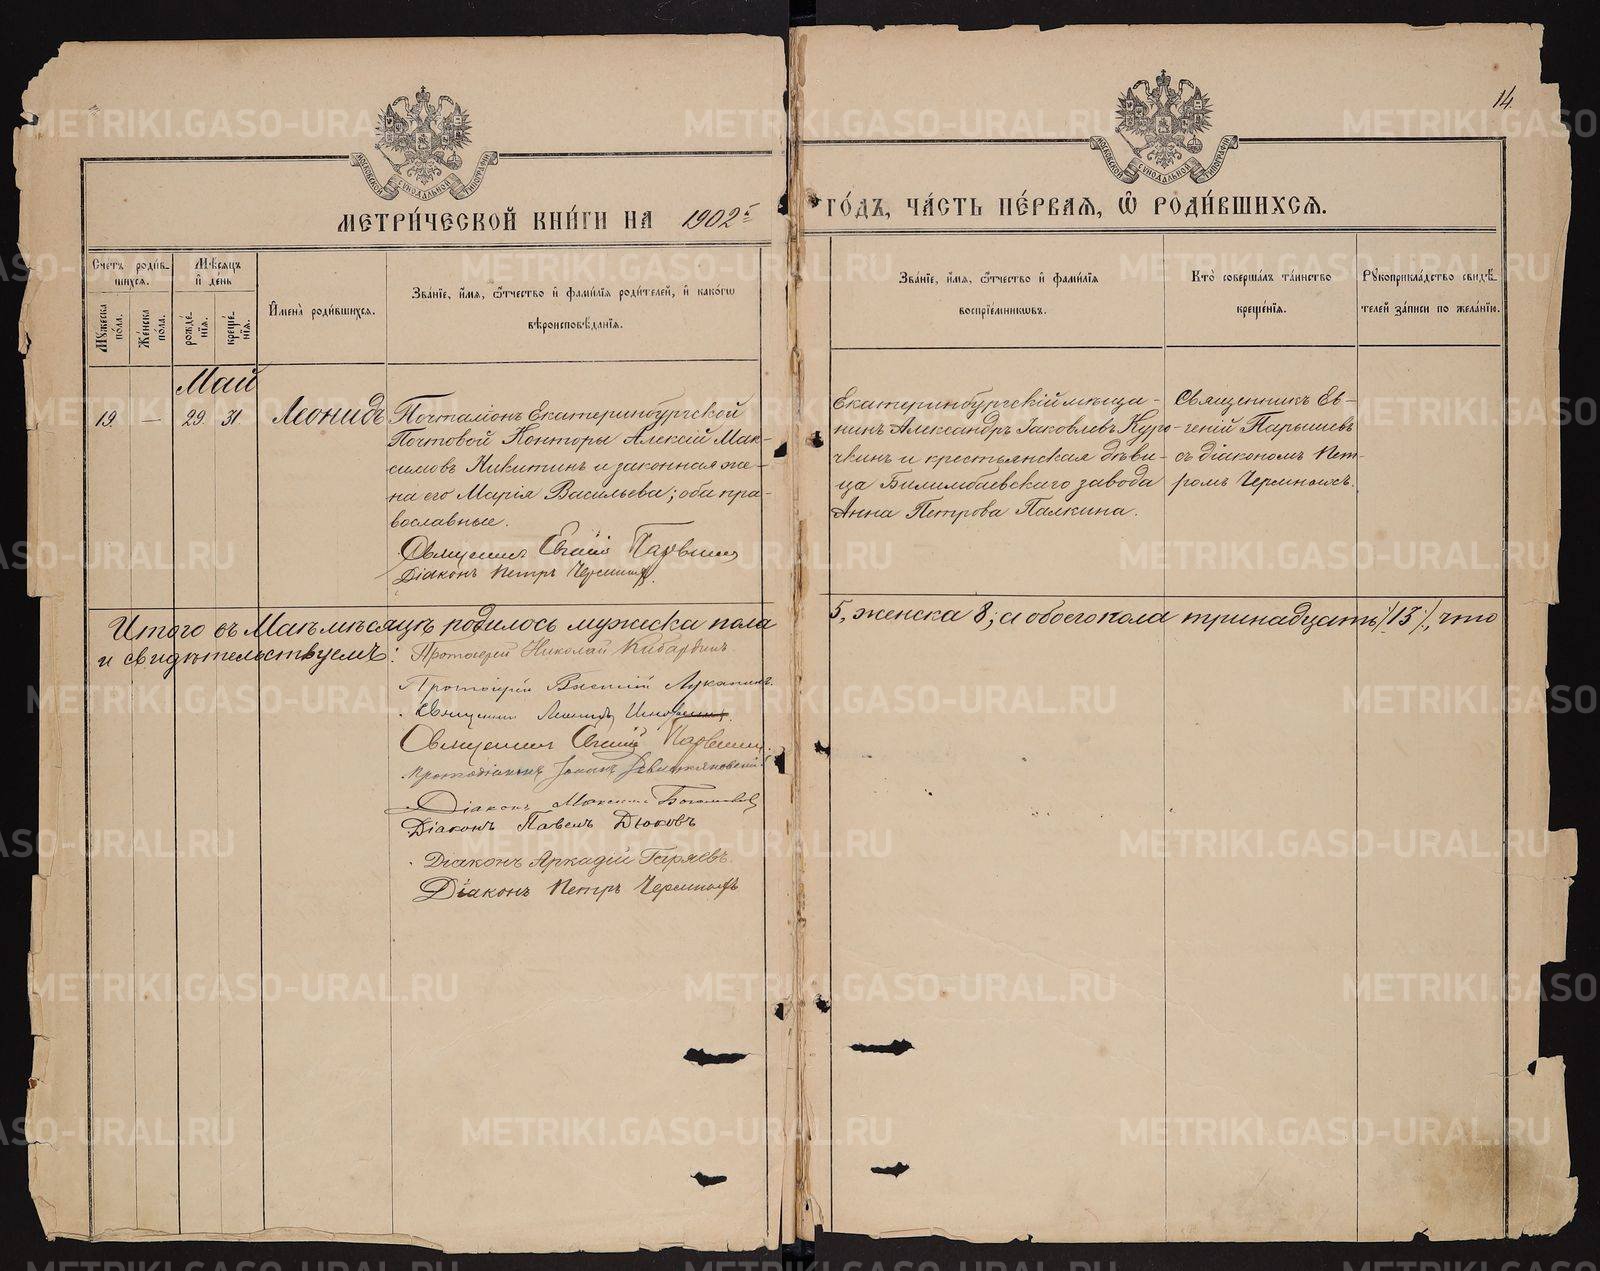 14.
МОСКОВСКОЙ СѴНОДАЛЬНОЙ ТИПОГРАФІИ
МОСКОВСКОЙ СѴНОДАЛЬНОЙ ТИПОГРАФІИ
МЕТРИ́ЧЕСКОЙ КНИ́ГИ НА 1902й ГО́ДЪ, ЧА́СТЬ ПЕ́РВАѦ, Ѡ҆ РОДИ́ВШИХСѦ.
Сче́тъ роди́в-
шихсѧ.
Мꙋ́жеска по́ла.
Же́нска по́ла.
Мѣ́сѧцъ
и҆ де́нь
рожде́-
нїѧ.
креще́-
нїѧ.
И҆мена̀ роди́вшихсѧ.
Зва́нїе, и҆́мѧ, ѻ҆́тчество и҆ фами́лїѧ роди́телей, и҆ како́гѡ
вѣроисповѣ́данїѧ.
Зва́нїе, и҆́мѧ, ѻ҆́тчество и҆ фами́лїѧ
воспрїе́мникѡвъ.
Кто̀ соверша́лъ та́инство
креще́нїѧ.
Рꙋкоприкла́дство свидѣ́-
телей за́писи по жела́нїю.
Май
19. — 29. 31. Леонидъ
Почталіонъ Екатеринбургской
Почтовой Конторы Алексій Мак-
симовъ Никитинъ и законная же-
на его Марія Васильева; оба пра-
вославные.
Священникъ Евгеній Парышевъ
Діаконъ Петръ
Екатеринбургскій мѣща-
нинъ Александръ Іаковлевъ Куро-
чкинъ и крестьянская дѣви-
ца Билимбаевскаго завода
Анна Петрова Палкина.
Священникъ Ев-
геній Парышевъ
съ діакономъ Пет-
ромъ
Итого въ Маѣ мѣсяцѣ родилось мужска пола 5, женска 8; а обоего пола тринадцать /13/, что
и свидѣтельствуемъ: Протоіерей Николай Кибардинъ
Протоіерей Василій Луканинъ.
Священникъ Леонидъ
Священникъ Евгеній Парышевъ.
Протодіаконъ
Діаконъ
Діаконъ Павелъ Дюковъ
Діаконъ Аркадій Гаряевъ.
Діаконъ Петръ
METRIKI.GASO-URAL.RU